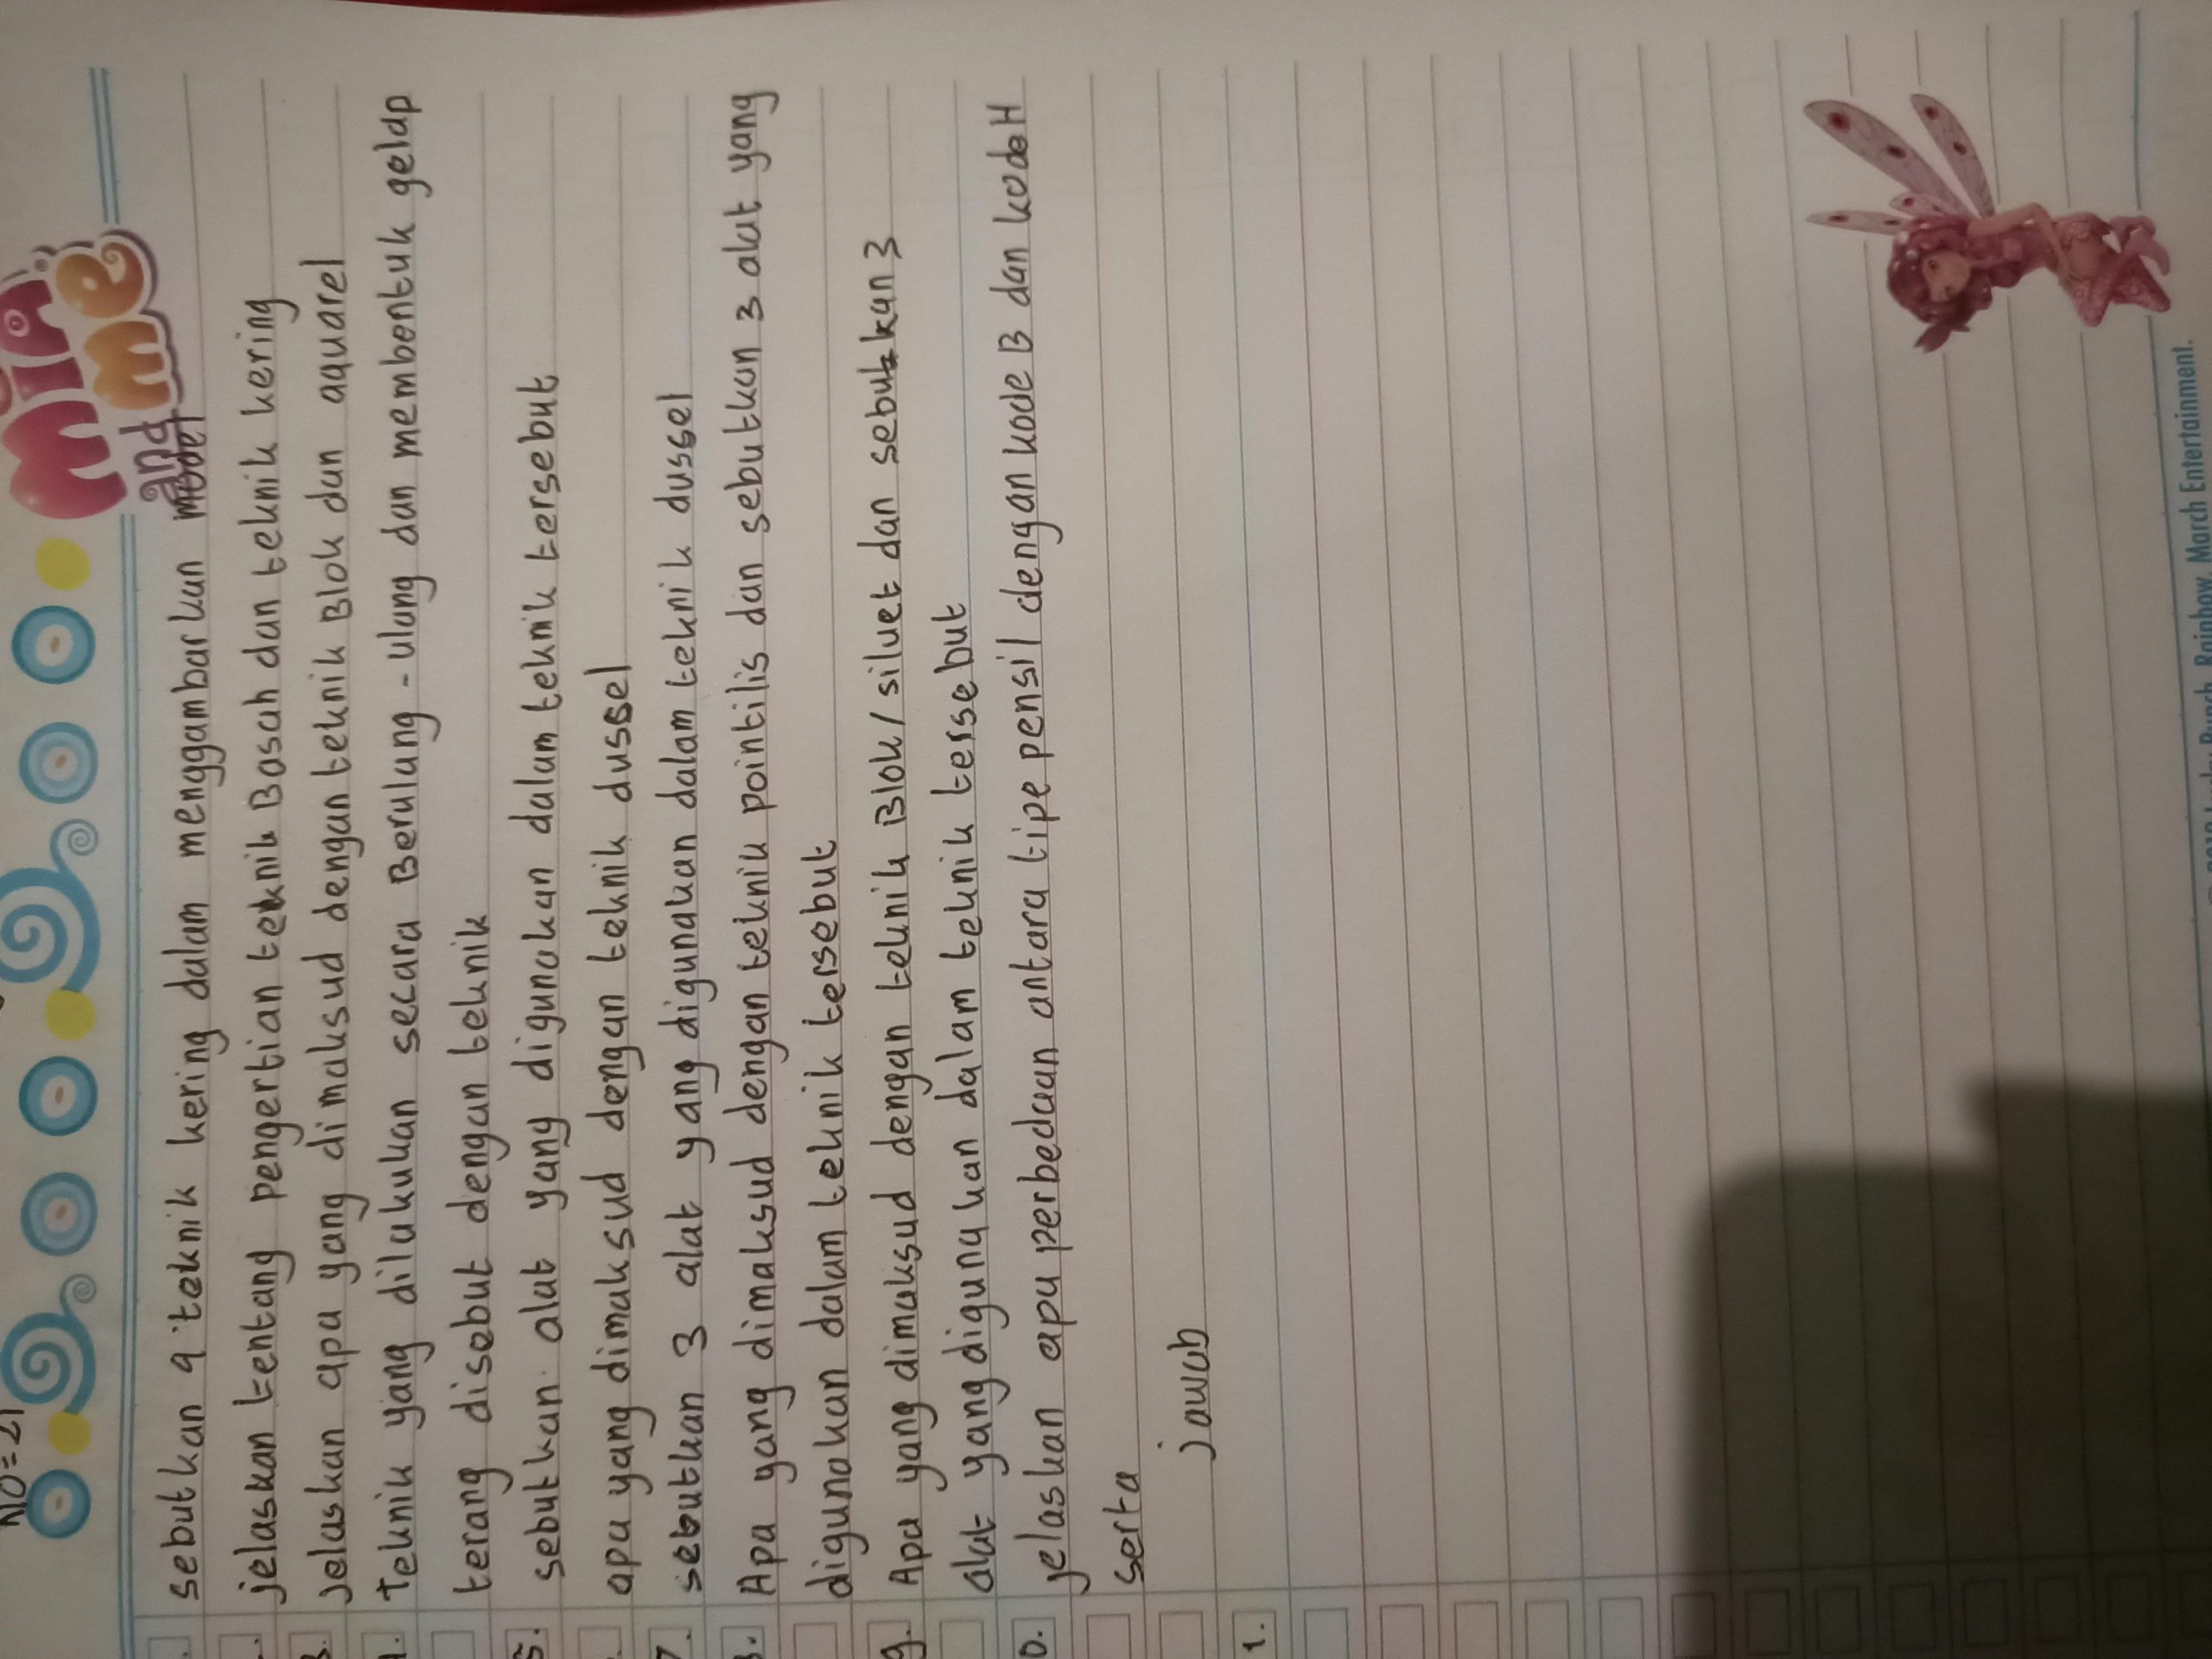 NO = 21
MIA
and
me
sebutkan 4 teknik kering dalam menggambarkan model
jelaskan tentang pengertian teknik Basah dan teknik kering
3. jelaskan apa yang dimaksud dengan teknik Blok dan aquarel
4. Teknik yang dilakukan secara Berulang-ulang dan membentuk gelap
terang disebut dengan teknik
5. sebutkan alat yang digunakan dalam teknik tersebut
apa yang dimaksud dengan teknik dussel
7. sebutkan 3 alat yang digunakan dalam teknik dussel
8. Apa yang dimaksud dengan teknik pointilis dan sebutkan 3 alat yang
digunakan dalam teknik tersebut
9. Apa yang dimaksud dengan teknik Blok/siluet dan sebutkan 3
alat yang digunakan dalam teknik tersebut
10. jelaskan apa perbedaan antara tipe pensil dengan kode B dan kode H
serta
jawab
1.
Rainbow. March Entertainment.